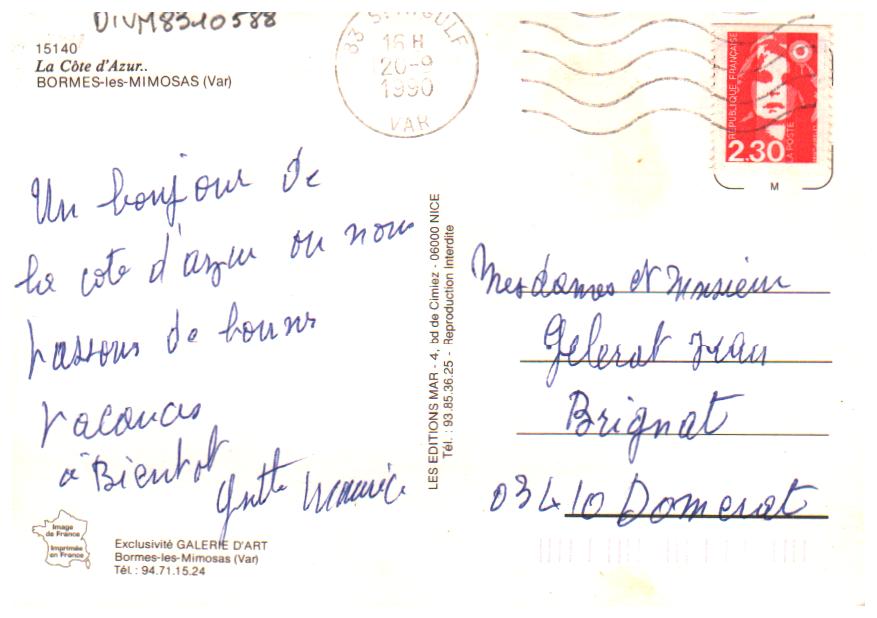 DIVM8310588
15140
La Côte d'Azur..
BORMES-les-MIMOSAS (Var)
83 ST AYGULF
16 H
20-9
1990
VAR
REPUBLIQUE FRANÇAISE
LA POSTE
2.30
M
Un bonjour de
la cote d'azur ou nous
passons de bonnes
vacances
à Bientot
Maurice
LES EDITIONS MAR - 4, bd de Cimiez - 06000 NICE
Tél. : 93.85.36.25 - Reproduction Interdite
Mesdames et Monsieur
Gelerat Jean
Brignat
03410 Domerat
Image
de France
Imprimée
en France
Exclusivité GALERIE D'ART
Bormes-les-Mimosas (Var)
Tél. : 94.71.15.24